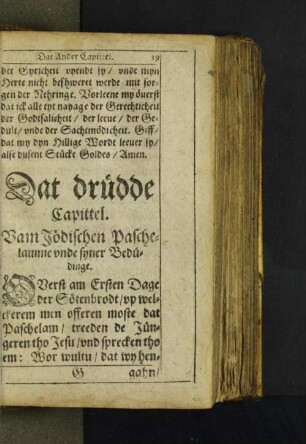 Dat Ander Capittel. 19
der Gyricheit vyendt sy / vnde myn
Herte nicht beschweret werde mit sor-
gen der Nehringe. Vorleene my ouerst
dat ick alle tyt nayage der Gerechticheit
der Godtsalicheit / der leeue / der Ge-
dult / vnde der Sachtmödicheit. Giff /
dat my dyn Hillige Wordt leeuer sy /
alse dusent Stücke Goldes / Amen.
Dat drüdde
Capittel.
Vam Jödischen Pasche-
lamme vnde syner Bedü-
dinge.
OVerst am Ersten Dage
der Sötenbrodt / vp wel-
ckerem men offeren moste dat
Paschelam / treeden de Jün-
geren tho Jesu / vnd sprecken tho
em: Wor wultu / dat wy hen-
G gahn /